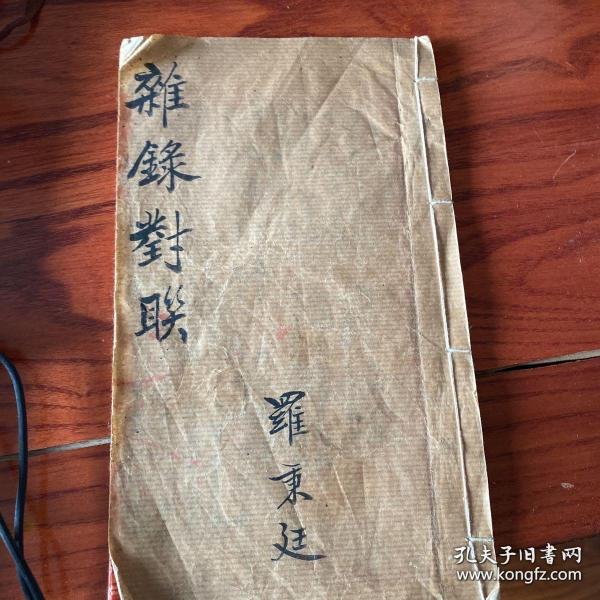 雜錄對聯
羅秉廷
孔夫子旧書网
www.kongfz.com